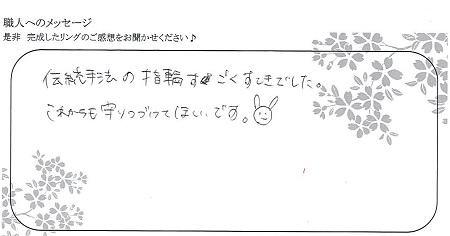 職人へのメッセージ
是非 完成したリングのご感想をお聞かせください♪
伝統手法の指輪すごくすてきでした。
これからも守りつづけてほしいです。